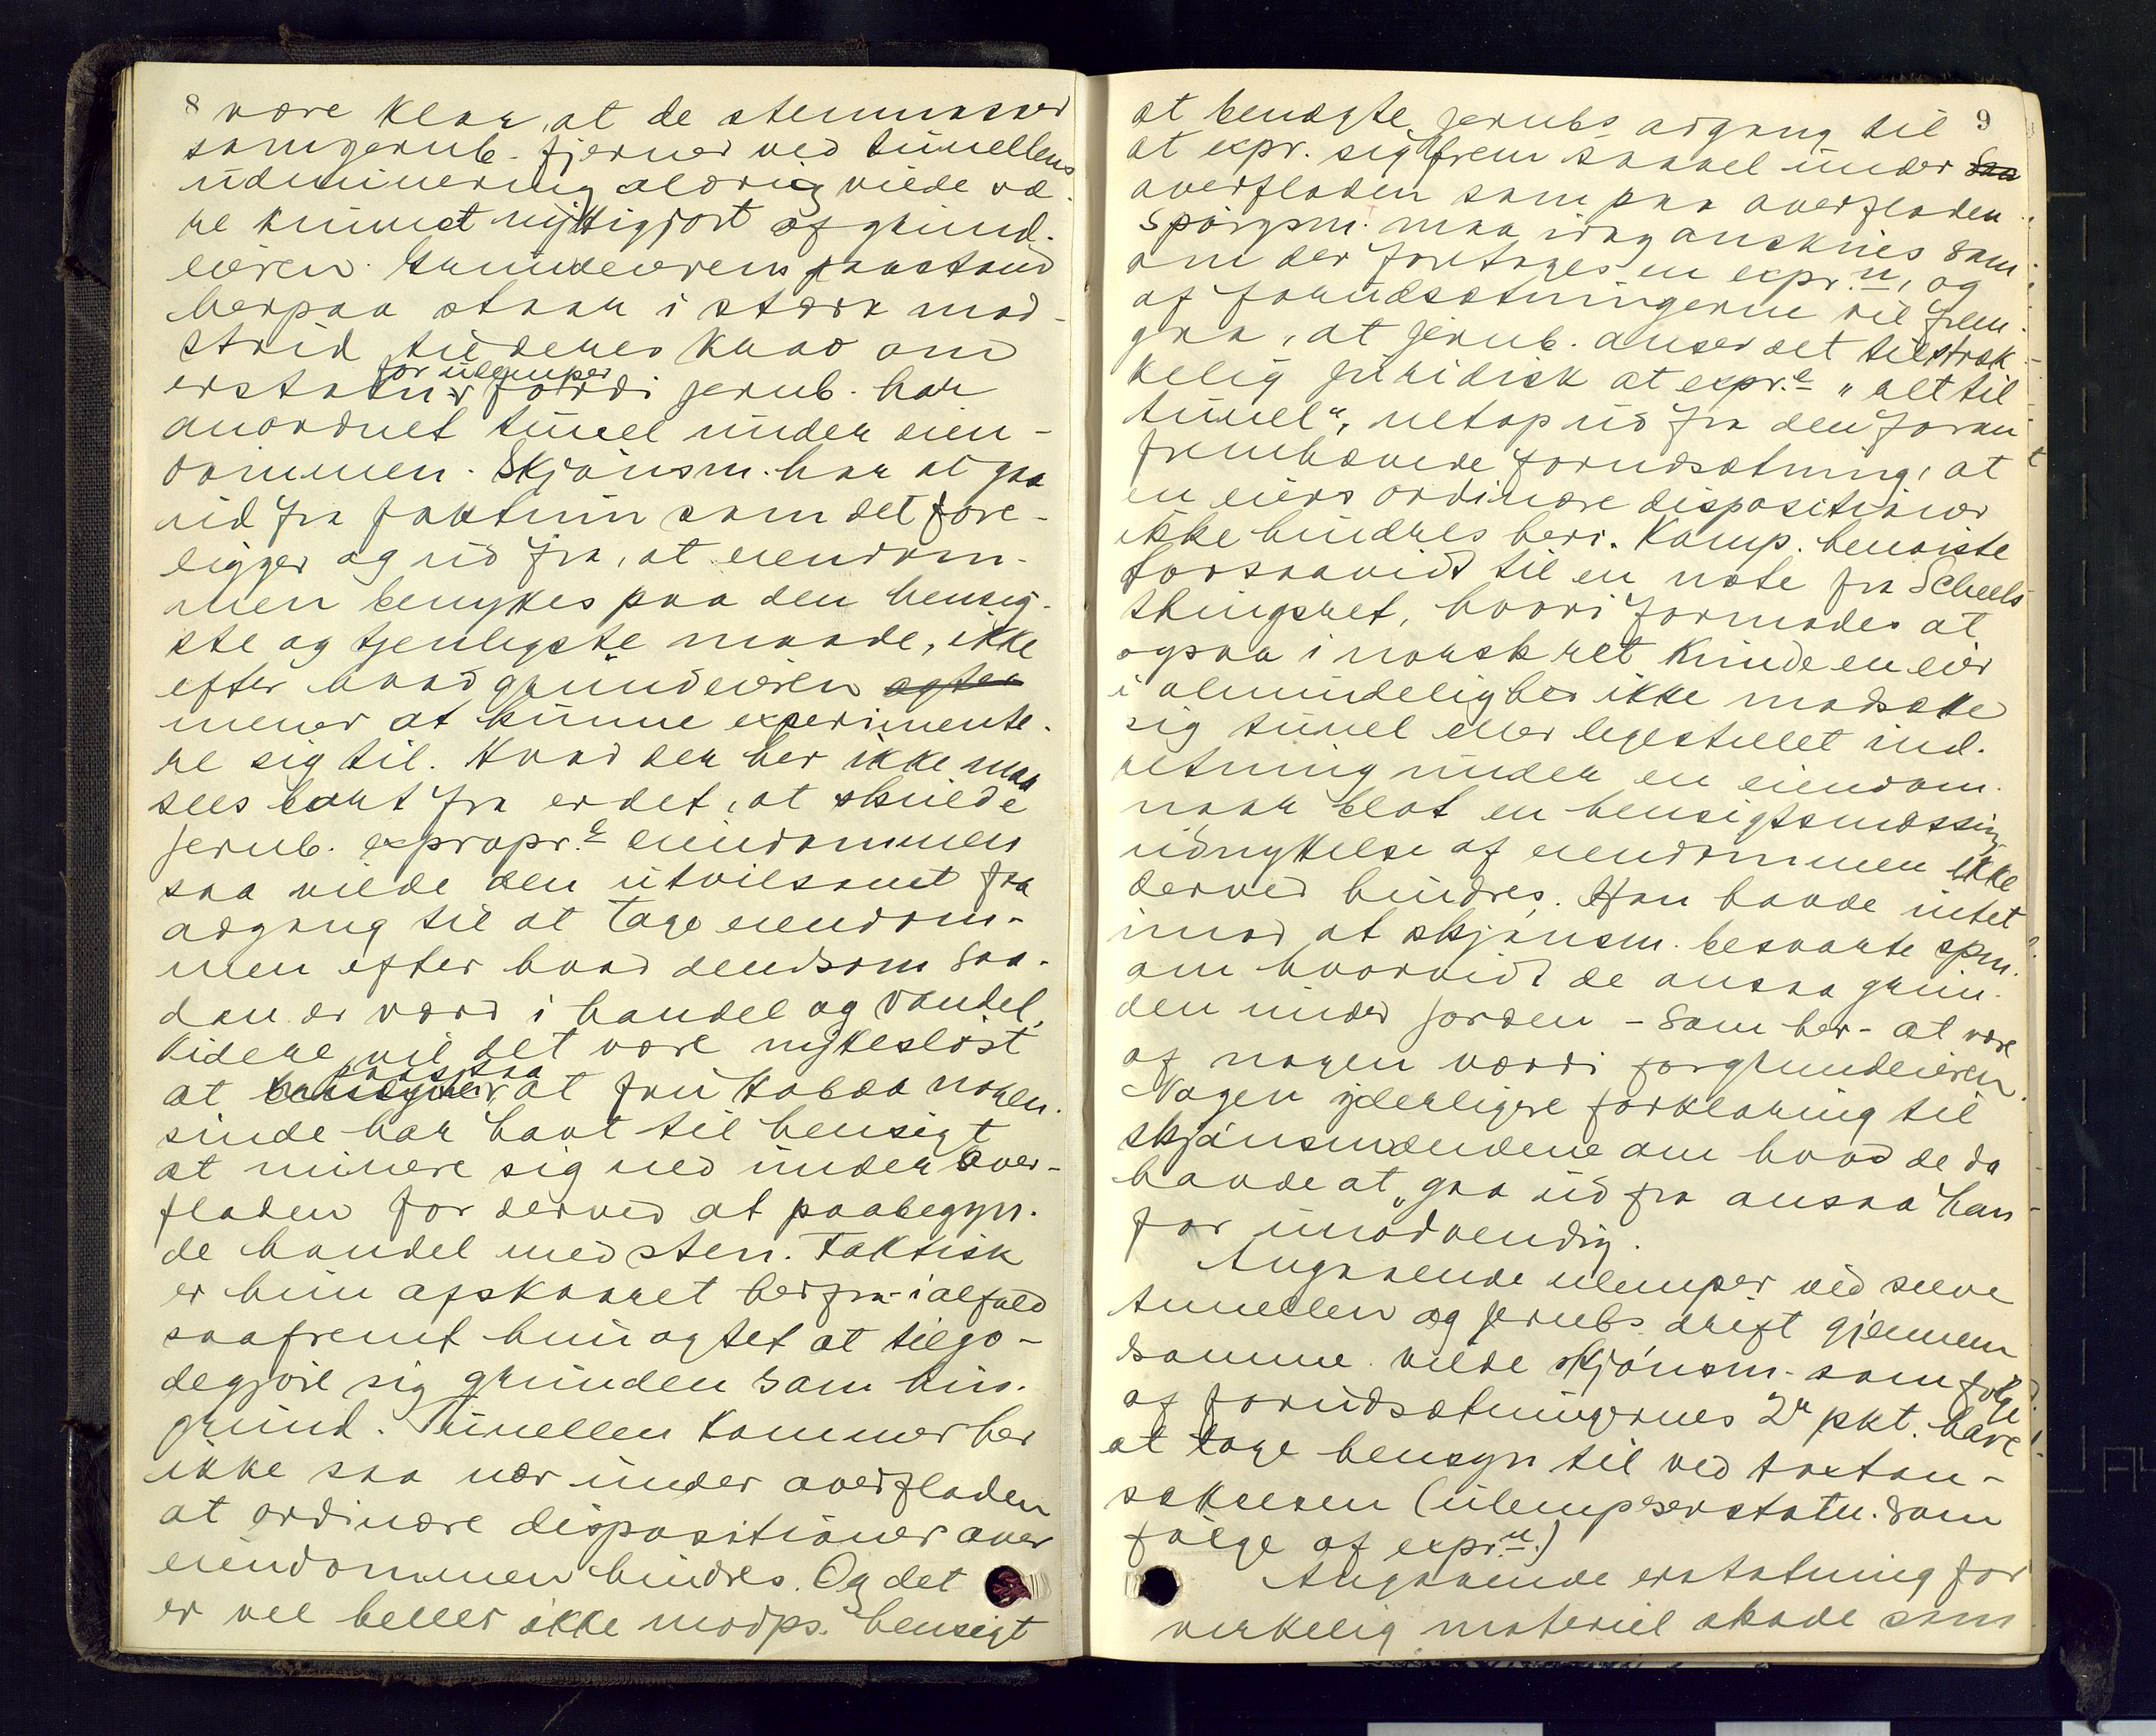 8
være klar, at de stenmasser
somjernb. fjerner ved tunellens
udminering aldrig vilde væ-
re kunnet nyttigjort af grund-
eieren. Grundeierens paastand
herpaa staar i stærk mod-
strid til deres krav om
for ulemper
erstatn. fordi jernb. har
anordnet tunel under eien-
dommen. Skjønsm. har at gaa
ud fra faktum som det fore-
ligger og ud fra, at eiendom-
men benyttes paa den hensig-
ste og tjenligste maade, ikke
efter hvad grundeieren agter
mener at kunne experimente-
re sig til. Hvad der her ikke maa
sees bort fra er det, at skulde
jernb. expropr.e eiendommen
saa vilde den utvilsomt faa
adgang til at tage eiendom-
men efter hvad den som saa-
dan er værd i handel og vandel.
Videre vil det være nytteløst
paastaa
at at fru Kobæa nogen-
sinde har havt til hensigt
at minere sig ned under over-
fladen for derved at paabegyn-
de handel med sten. Faktisk
er hun afskaaret herfra - ialfald
saafremt hun agtet at tilgo-
degjøre sig grunden som hus-
grund. Tunellen kommer her
ikke saa nær under overfladen
at ordinære dispositioner over
eiendommen hindres. Og det
er vel heller ikke modps. hensigt
9
at benægte jernbs adgang til
at expr. sig frem saavel under saa
overfladen som paa overfladen.
Spørgsm. maa idag ansknes som
om der foretages en expr.n, og
af forudsætningerne vil frem-
gaa, at jernb. anser det tilstræk-
kelig juridisk at expr.e "ret til
tunel", netop ud fra den foran
fremhævede forudsætning, at
en eiers ordinære dispositioner
ikke hindres heri. Komp. henviste
forsaavidt til en note fra Scheels
thingsret, hvori formodes at
ogsaa i norsk ret kunde en eier
i almindelighed ikke modsætte
sig tunel eller ligestillet ind-
retning under en eiendom
naar blot en hensigtsmæssig
udnyttelse af eiendommen ikke
derved hindres. Han havde intet
imod at skjønsm. besvarte spm.
om hvorvidt de ansaa grun-
den under jorden - som her - at være
af nogen værdi forgrundeieren.
Nogen yderligere forklaring til
skjønsmændene om hvad de da
havde at gaa ud fra ansaa han
for unødvendig.
Angaaende ulemper ved selve
tunellen og jernbs. drift gjennem
samme vilde skjønsm. som følge
af forudsætningernes 2n pkt. have
at tage hensyn til ved taxtan-
sættelsen (ulempeserstatn. som
følge af expr.n.)
Angaaende erstatning for
virkelig materiel skade som